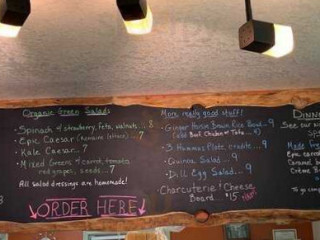 Organic Green Salads
• Spinach w/ strawberry, feta, walnuts... 8
• Epic Caesar (romaine lettuce)...7
• Kale Caesar...7
• Mixed Greens w/ carrot, tomatoes
red grapes, seeds...7
All salad dressings are homemade!
ORDER HERE
More really good stuff!
• Ginger House Brown Rice Bowl...9
(add Chicken or Tofu
• 3 Hummus Plate, crudite...9
• Quinoa Salad...9
• Dill Egg Salad...9
Charcuterie / Cheese
Board... $15
DINN
See our
Made
Epic
Caramel
Crème Br
To go